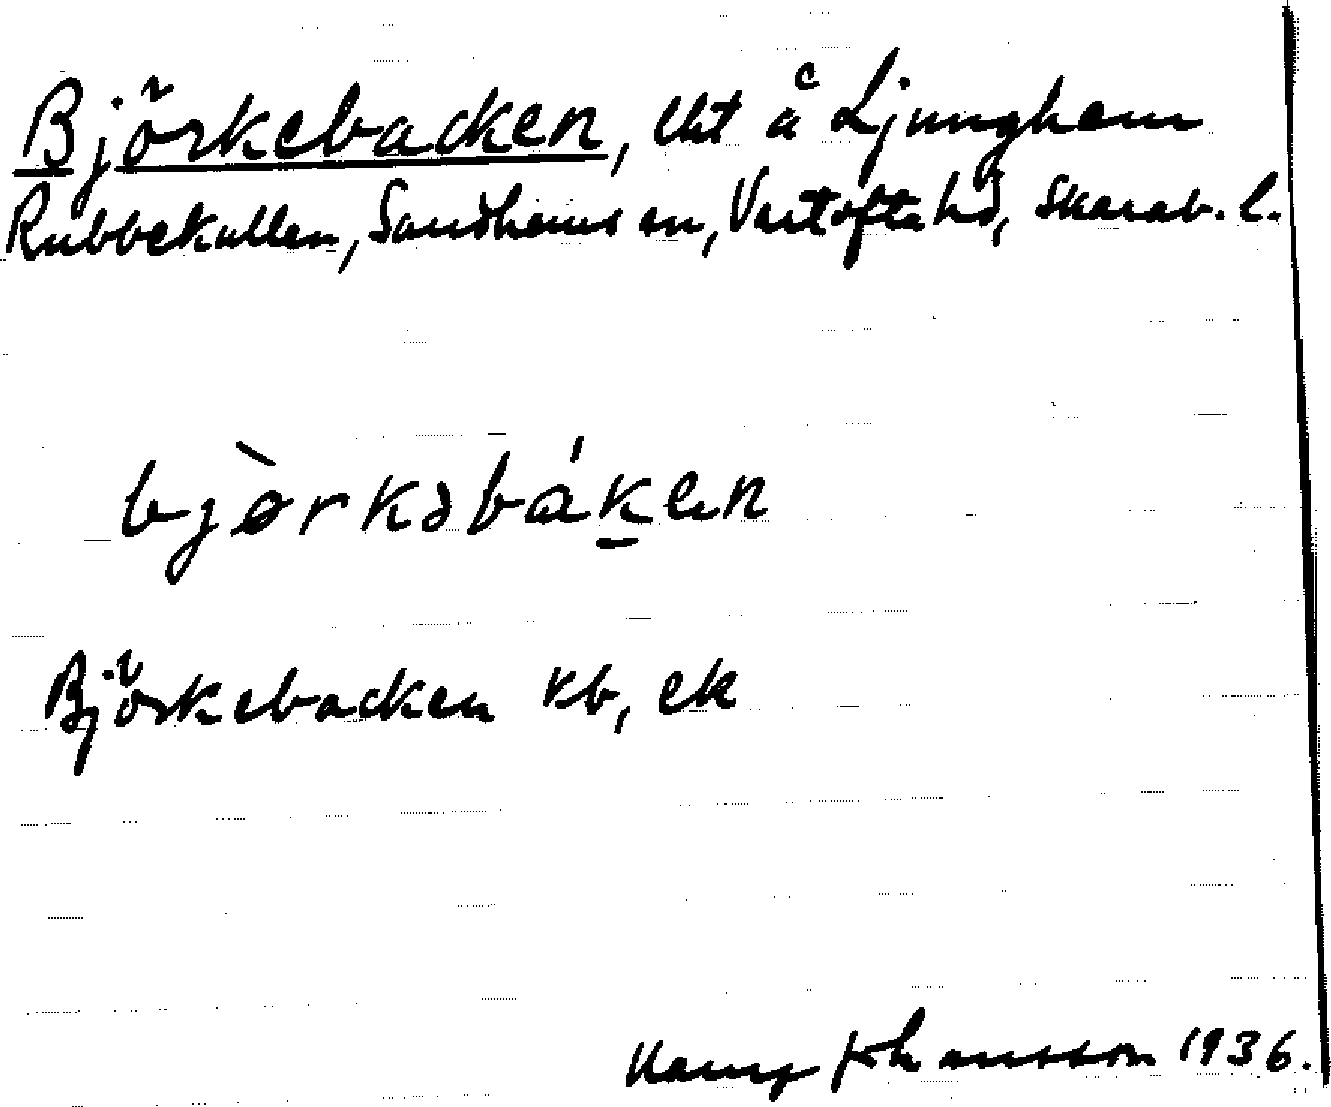 Björkebacken, lht å Ljunghem
Rubbekullen, Sandhems sn, Vartofta hd, Skarab. l.
bjòrkəbáken
Björkebacken kb, ek
Johansson 1936.